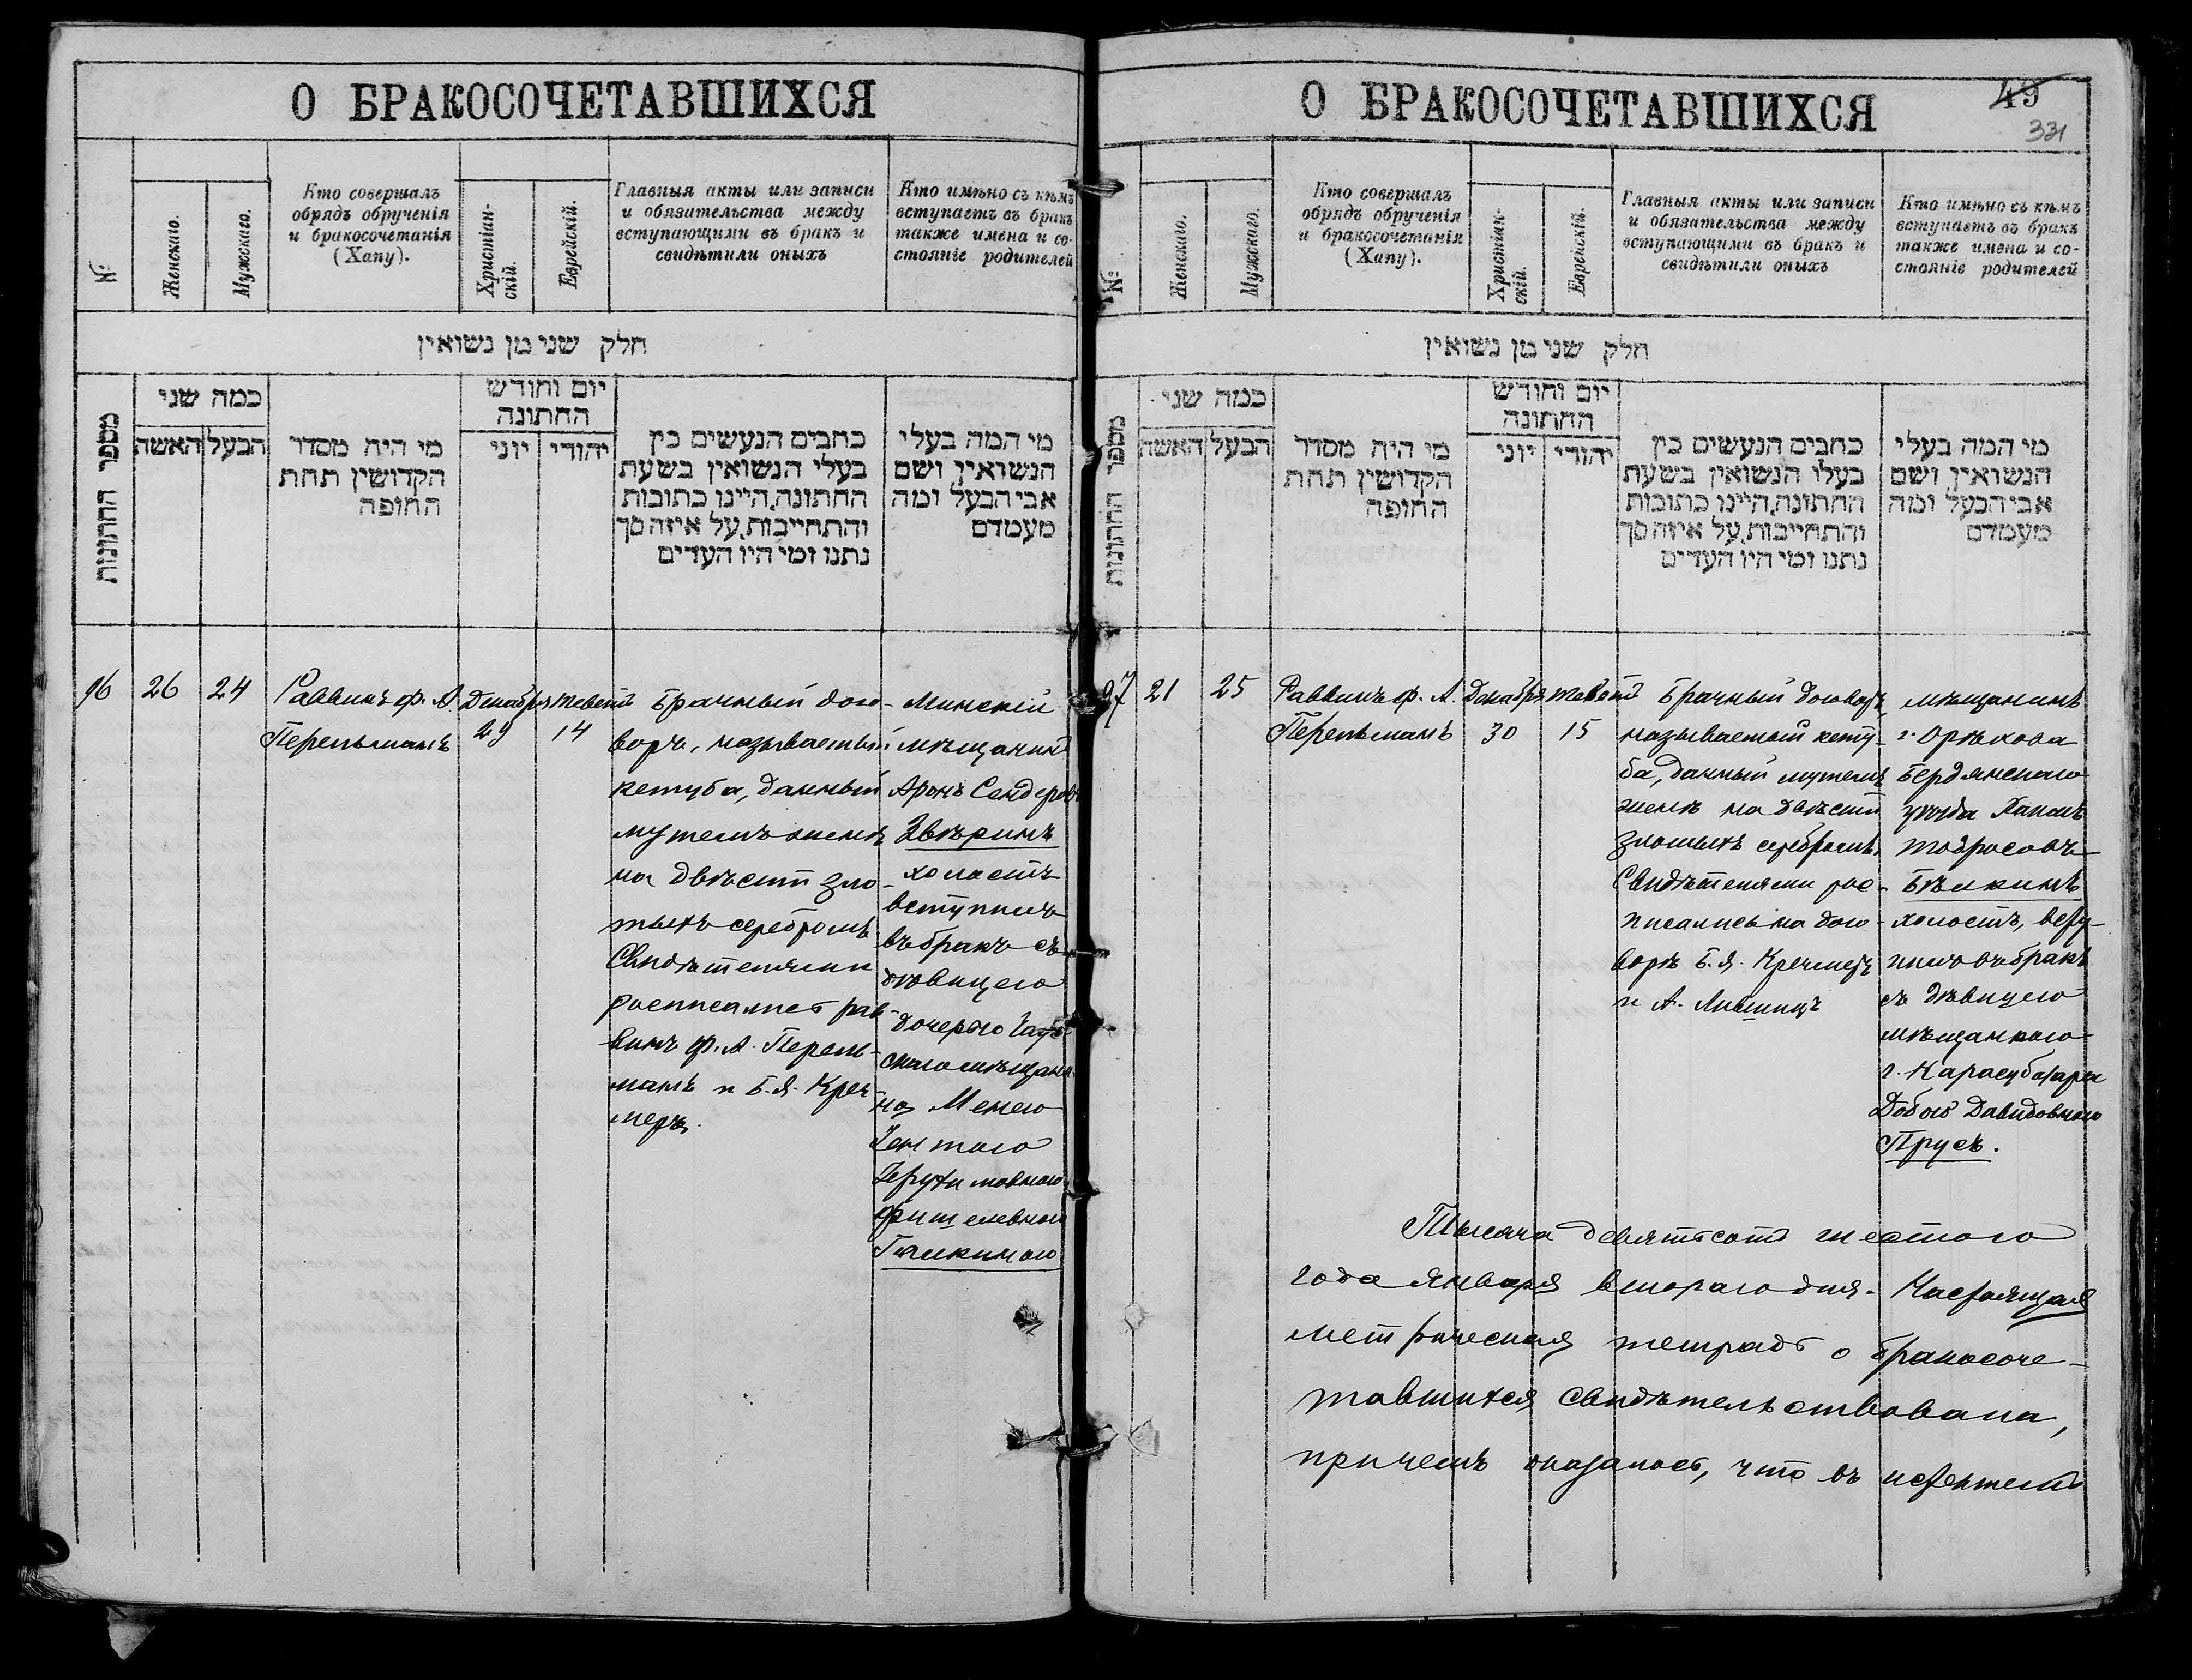 О БРАКОСОЧЕТАВШИХСЯ
№
Женскаго.
Мужскаго.
Кто совершалъ
обрядъ обрученія
и бракосочетанія
(Хапу).
Христіан-
скій.
Еврейскій.
Главныя акты или записи
и обязательства между
вступающими въ бракъ и
свидѣтили оныхъ
Кто имѣно съ кѣмъ
вступаетъ въ бракъ
также имена и со-
стояніе родителей
חלק שני מן נשואין
מספר החתונות
כמה שני
האשה
הבעל
מי היה מסדר
הקדושין תחת
החופה
יום וחודש
החתונה
יוני
יהודי
כתבים הנעשים בין
בעלי הנשואין בשעת
החתונה, היינו כתובות
והתחייבות, על איזה סך
נתנו ומי היו העדים
מי המה בעלי
הנשואין ושם
אבי הבעל ומה
מעמדם
96
26
24
Раввинъ Ф. А.
Перельманъ
Декабря
29
Теветъ
14
Брачный дого-
воръ, называемый
кетуба, данный
мужемъ женѣ
на двѣсти зло-
тыхъ серебромъ
Свидѣтелями
росписались рав-
винъ Ф. А. Перель-
манъ и Б. Я. Креч-
меръ.
Минскій
мѣщанинъ
Аронъ Сендеровъ
Звѣринъ
холостъ
вступилъ
въ бракъ съ
дѣвицею
дочерью
мѣщани-
на Менею
Фишелевною
Галкиною
О БРАКОСОЧЕТАВШИХСЯ
49
331
№
Женскаго.
Мужскаго.
Кто совершалъ
обрядъ обрученія
и бракосочетанія
(Хапу).
Христіан-
скій.
Еврейскій.
Главныя акты или записи
и обязательства между
вступающими въ бракъ и
свидѣтили оныхъ
Кто имѣно съ кѣмъ
вступаетъ въ бракъ
также имена и со-
стояніе родителей
חלק שני מן נשואין
מספר החתונות
כמה שני
האשה
הבעל
מי היה מסדר
הקדושין תחת
החופה
יום וחודש
החתונה
יוני
יהודי
כתבים הנעשים בין
בעלי הנשואין בשעת
החתונה, היינו כתובות
והתחייבות, על איזה סך
נתנו ומי היו העדים
מי המה בעלי
הנשואין ושם
אבי הבעל ומה
מעמדם
97
21
25
Раввинъ Ф. А.
Перельманъ
Декабря
30
Теветъ
15
Брачный договоръ,
называемый кету-
ба, данный мужемъ
женѣ на двѣсти
злотыхъ серебромъ.
Свидѣтелями рос-
писались на дого-
ворѣ Б. Я. Кречмеръ
и А. Лившицъ
мѣщанинъ
г. Орѣхова
Бердянскаго
уѣзда
Тодросовъ
Бѣлкинъ
холостъ, всту-
пилъ въ бракъ
съ дѣвицею
мѣщанкою
г. Карасубазара
Добою Давидовною
Прусъ.
Тысяча девятьсотъ шестого
года Января второго дня. Настоящая
метрическая тетрадь о бракосоче-
тавшихся свидѣтельствована,
причемъ оказалось, что въ истекшемъ